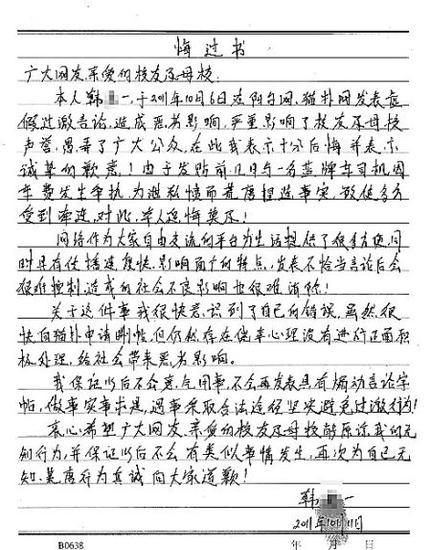 悔过书
广大网友、亲爱的校友及母校:
本人韩 一,于2011年10月6日在阿勾网、猫扑网发表虚
假过激言论,造成恶劣影响,严重影响了校友及母校
声誉,愚弄了广大公众,在此我表示十分后悔并表示
诚挚的歉意!由于发帖前几日与一名蓝牌车司机因
车费发生争执,为泄私愤而荒唐捏造事实,致使多方
受到牵连,对此,本人追悔莫及!
网络作为大家自由交流的平台为生活提供了很多方便,同
时具有传播速度快、影响面广的特点,发表不恰当言论后会
很难控制,造成的社会不良影响也很难消除!
关于这件事我很快意识到了自己的错误,虽然很
快向猫扑申请删帖,但仍然存在侥幸心理没有进行正面积
极处理,给社会带来恶劣影响。
我保证以后不会意气用事,不会再发表具有煽动言论字
帖,做事实事求是,遇事采取合法途径坚决避免过激行为!
衷心希望广大网友、亲爱的校友及母校能原谅我的无
知行为,并保证以后不会有类似事情发生,再次为自己无
知、荒唐行为真诚向大家道歉!
韩 一
2011年10月11日
B0638 年 月 日